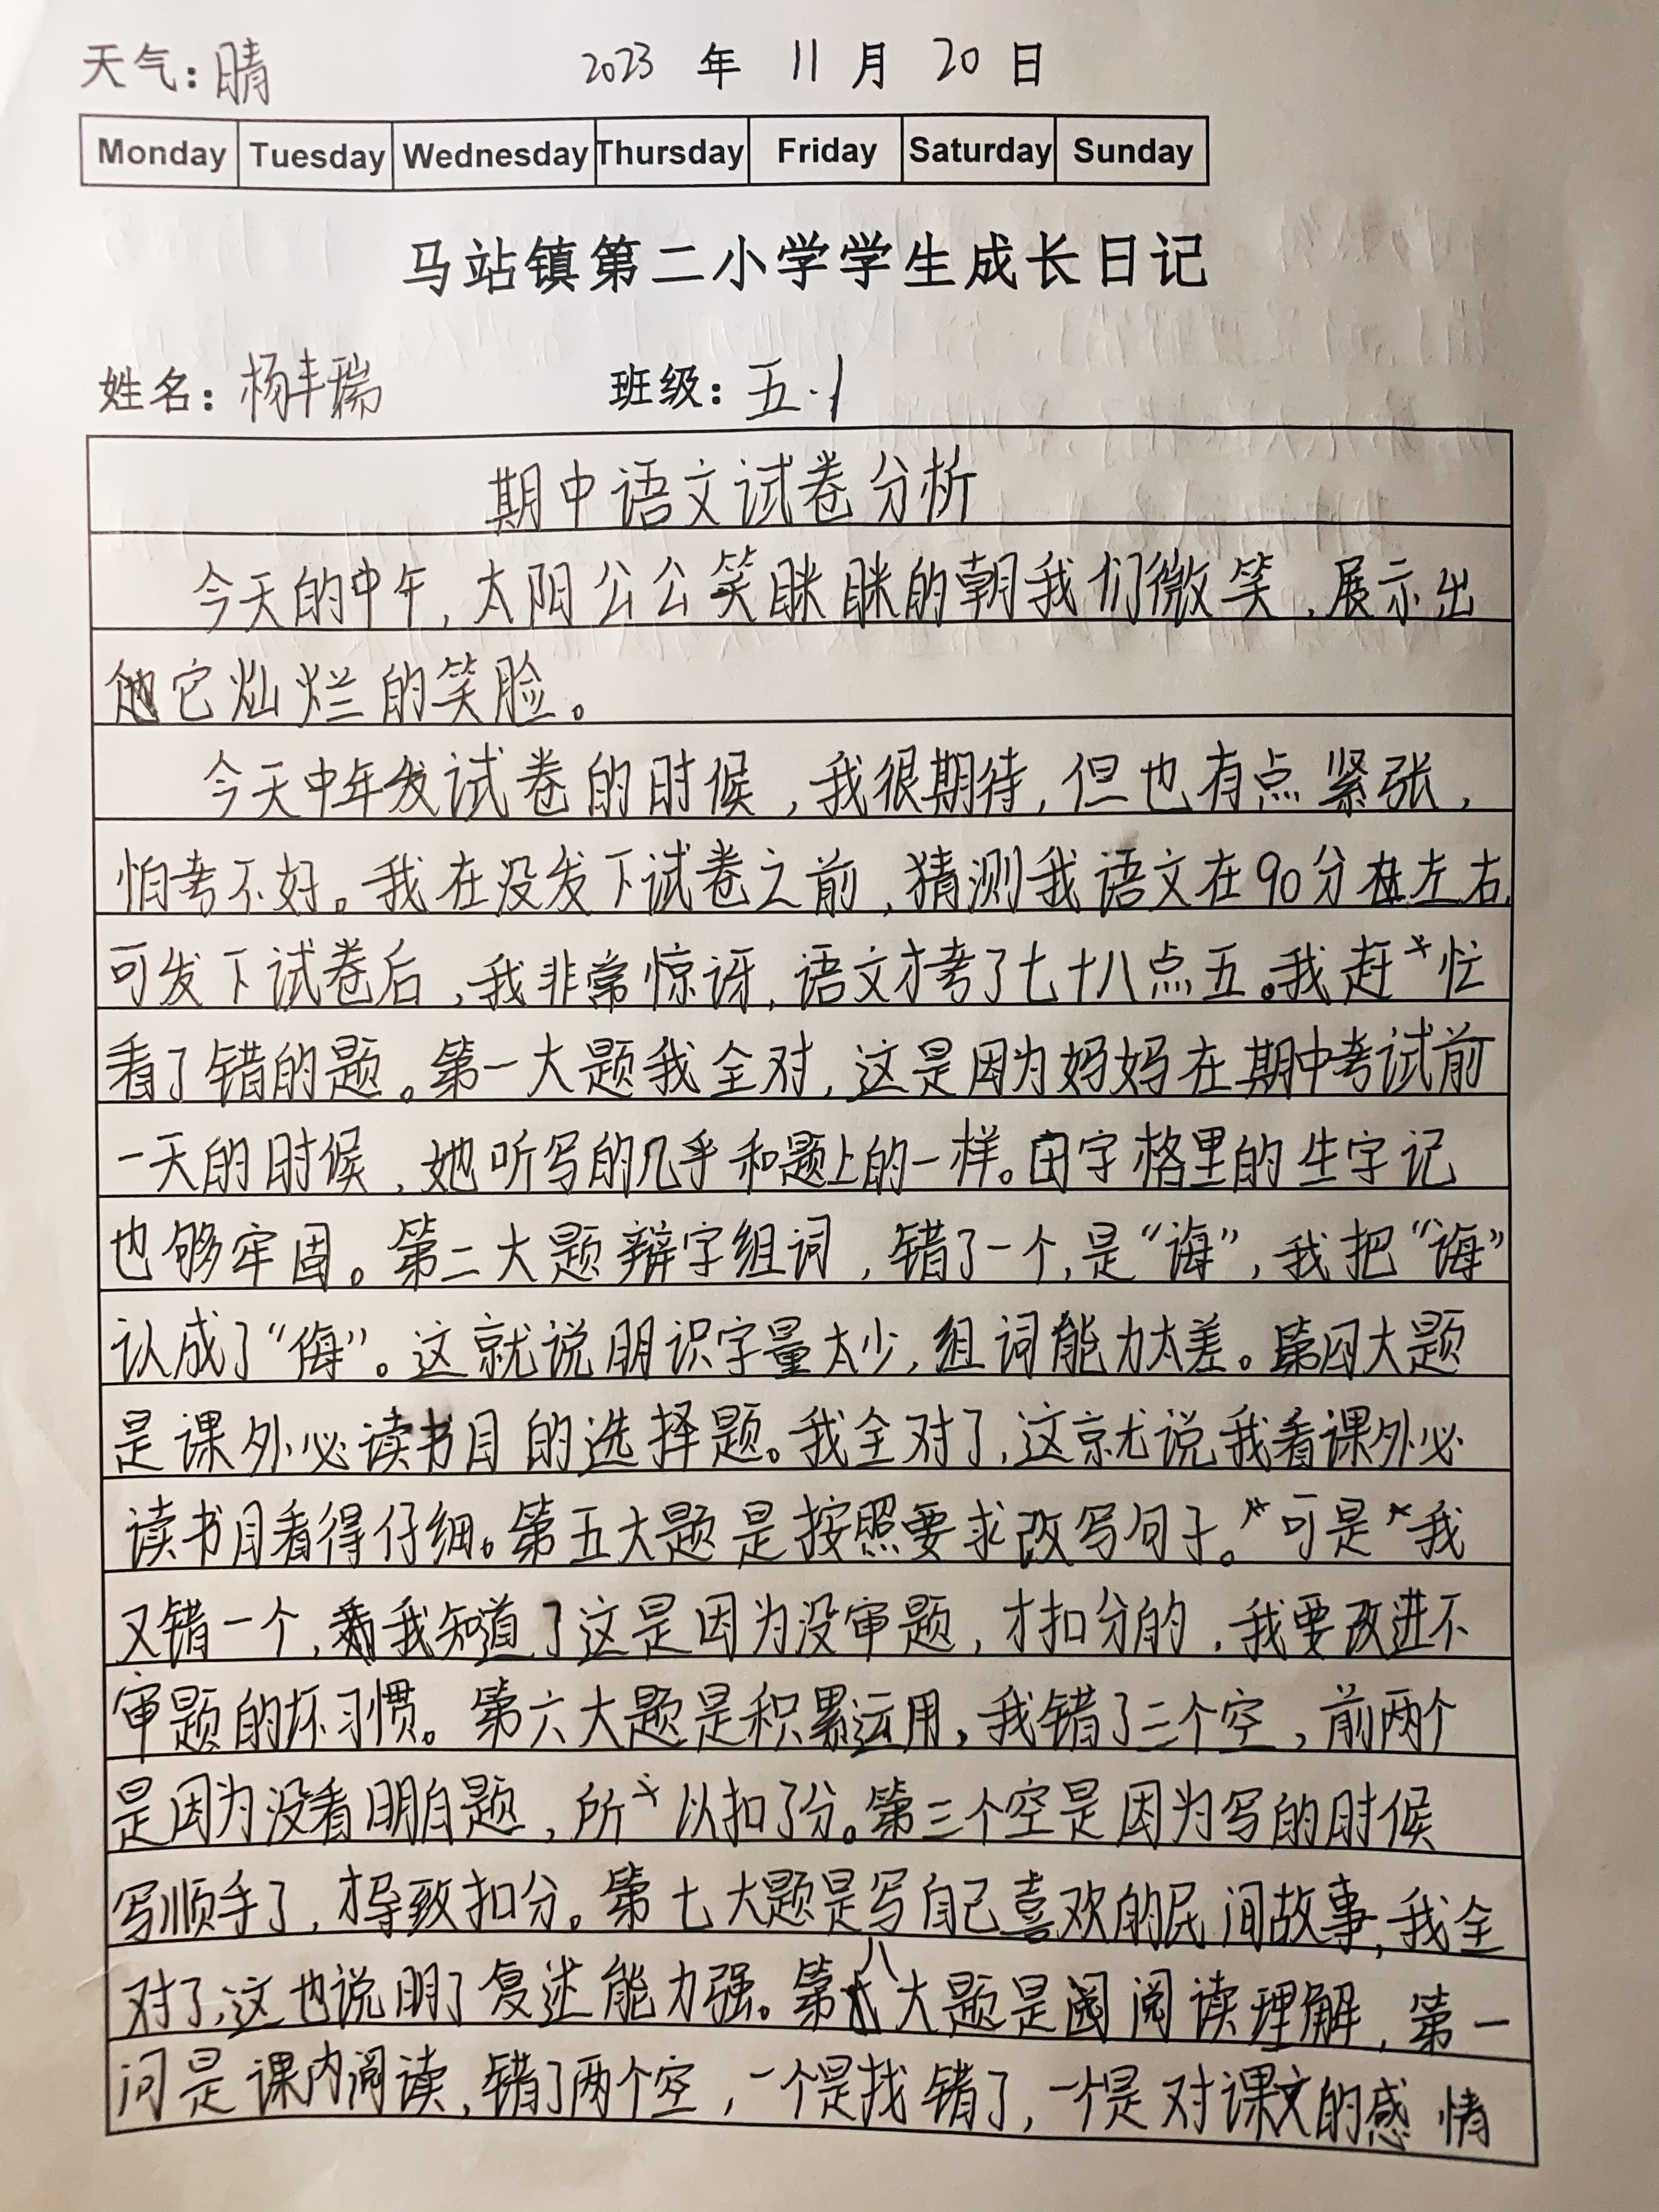 天气：晴 2023 年 11 月 20 日
Monday Tuesday Wednesday Thursday Friday Saturday Sunday
马站镇第二小学学生成长日记
姓名：杨丰瑞 班级：五.1
期中语文试卷分析
今天的中午，太阳公公笑眯眯的朝我们微笑，展示出
它灿烂的笑脸。
今天中午发试卷的时候，我很期待，但也有点紧张，
怕考不好。我在没发下试卷之前，猜测我语文在90分左右，
可发下试卷后，我非常惊讶，语文才考了七十八点五。我赶忙
看了错的题。第一大题我全对，这是因为妈妈在期中考试前
一天的时候，她听写的几乎和题上的一样。田字格里的生字记
也够牢固。第二大题辩字组词，错了一个，是“诲”，我把“诲”
认成了“侮”。这就说明识字量太少，组词能力太差。第四大题
是课外必读书目的选择题。我全对了，这就说我看课外必
读书目看得仔细。第五大题是按照要求改写句子。可是我
又错一个，我知道了这是因为没审题，才扣分的，我要改进不
审题的坏习惯。第六大题是积累运用，我错了三个空，前两个
是因为没看明白题，所以扣了分。第三个空是因为写的时候
写顺手了，才导致扣分。第七大题是写自己喜欢的民间故事，我全
对了，这也说明了复述能力强。第八大题是阅读理解，第一
问是课内阅读，错了两个空，一个是找错了，一个是对课文的感情